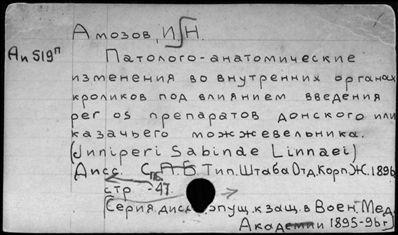 Амозов, И.Н.
Ап 519п
Патолого-анатомические
изменения во внутренних органах
кроликов под влиянием введения
per os препаратов донского или
казачьего можжевельника.
(Juniperi Sabinae Linnaei)
Дисс. СПб. Тип. Штаба Отд. Корп. Ж. 1896
стр. 47.
(Серия дисс. допущ. к защ. в Воен. Мед.
Академии 1895-96 г)